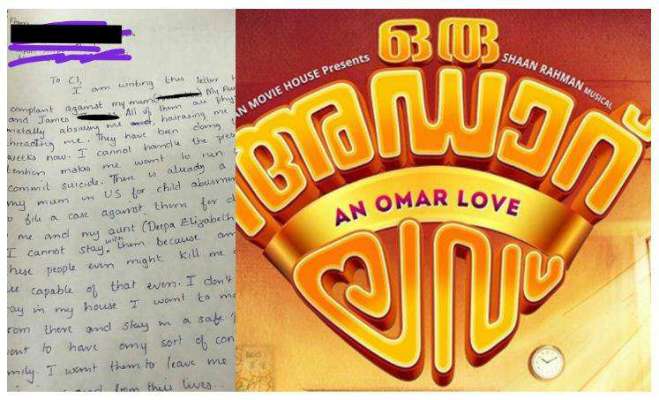 From
To CI,
I am writing this letter
complaint against my mum My
and James All of them are
mentally abusing me and harrasing me
threating me. They have been doing
weeks now. I cannot handle the
tention makes me want to run
commit suicide. There is already a
my mum in US for child
to file a case against them for
me and my aunt (Deepa Elizabeth
I cannot stay with them because
these people even might kill me
capable of that even. I don't
in my house I want to
from there and stay in a safe
want to have any sort of
I want them to leave me
from their lives.
AN MOVIE HOUSE Presents
ഒരു
SHAAN RAHMAN MUSICAL
അഡാറ്
AN OMAR LOVE
ലവ്